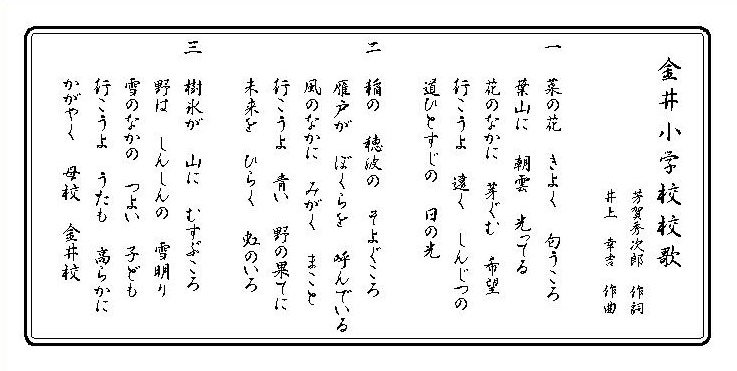 金井小学校校歌
芳賀秀次郎　作詞
井上　幸吉　作曲
一　菜の花　きよく　匂うころ
葉山に　朝雲　光ってる
花のなかに　芽ぐむ　希望
行こうよ　遠く　しんじつの
道ひとすじの　日の光
二　稲の　穂波の　そよぐころ
雁戸が　ぼくらを　呼んでいる
風のなかに　みがく　まこと
行こうよ　青い　野の果てに
未来を　ひらく　虹のいろ
三　樹氷が　山に　むすぶころ
野は　しんしんの　雪明り
雪のなかの　つよい　子ども
行こうよ　うたも　高らかに
かがやく　母校　金井校